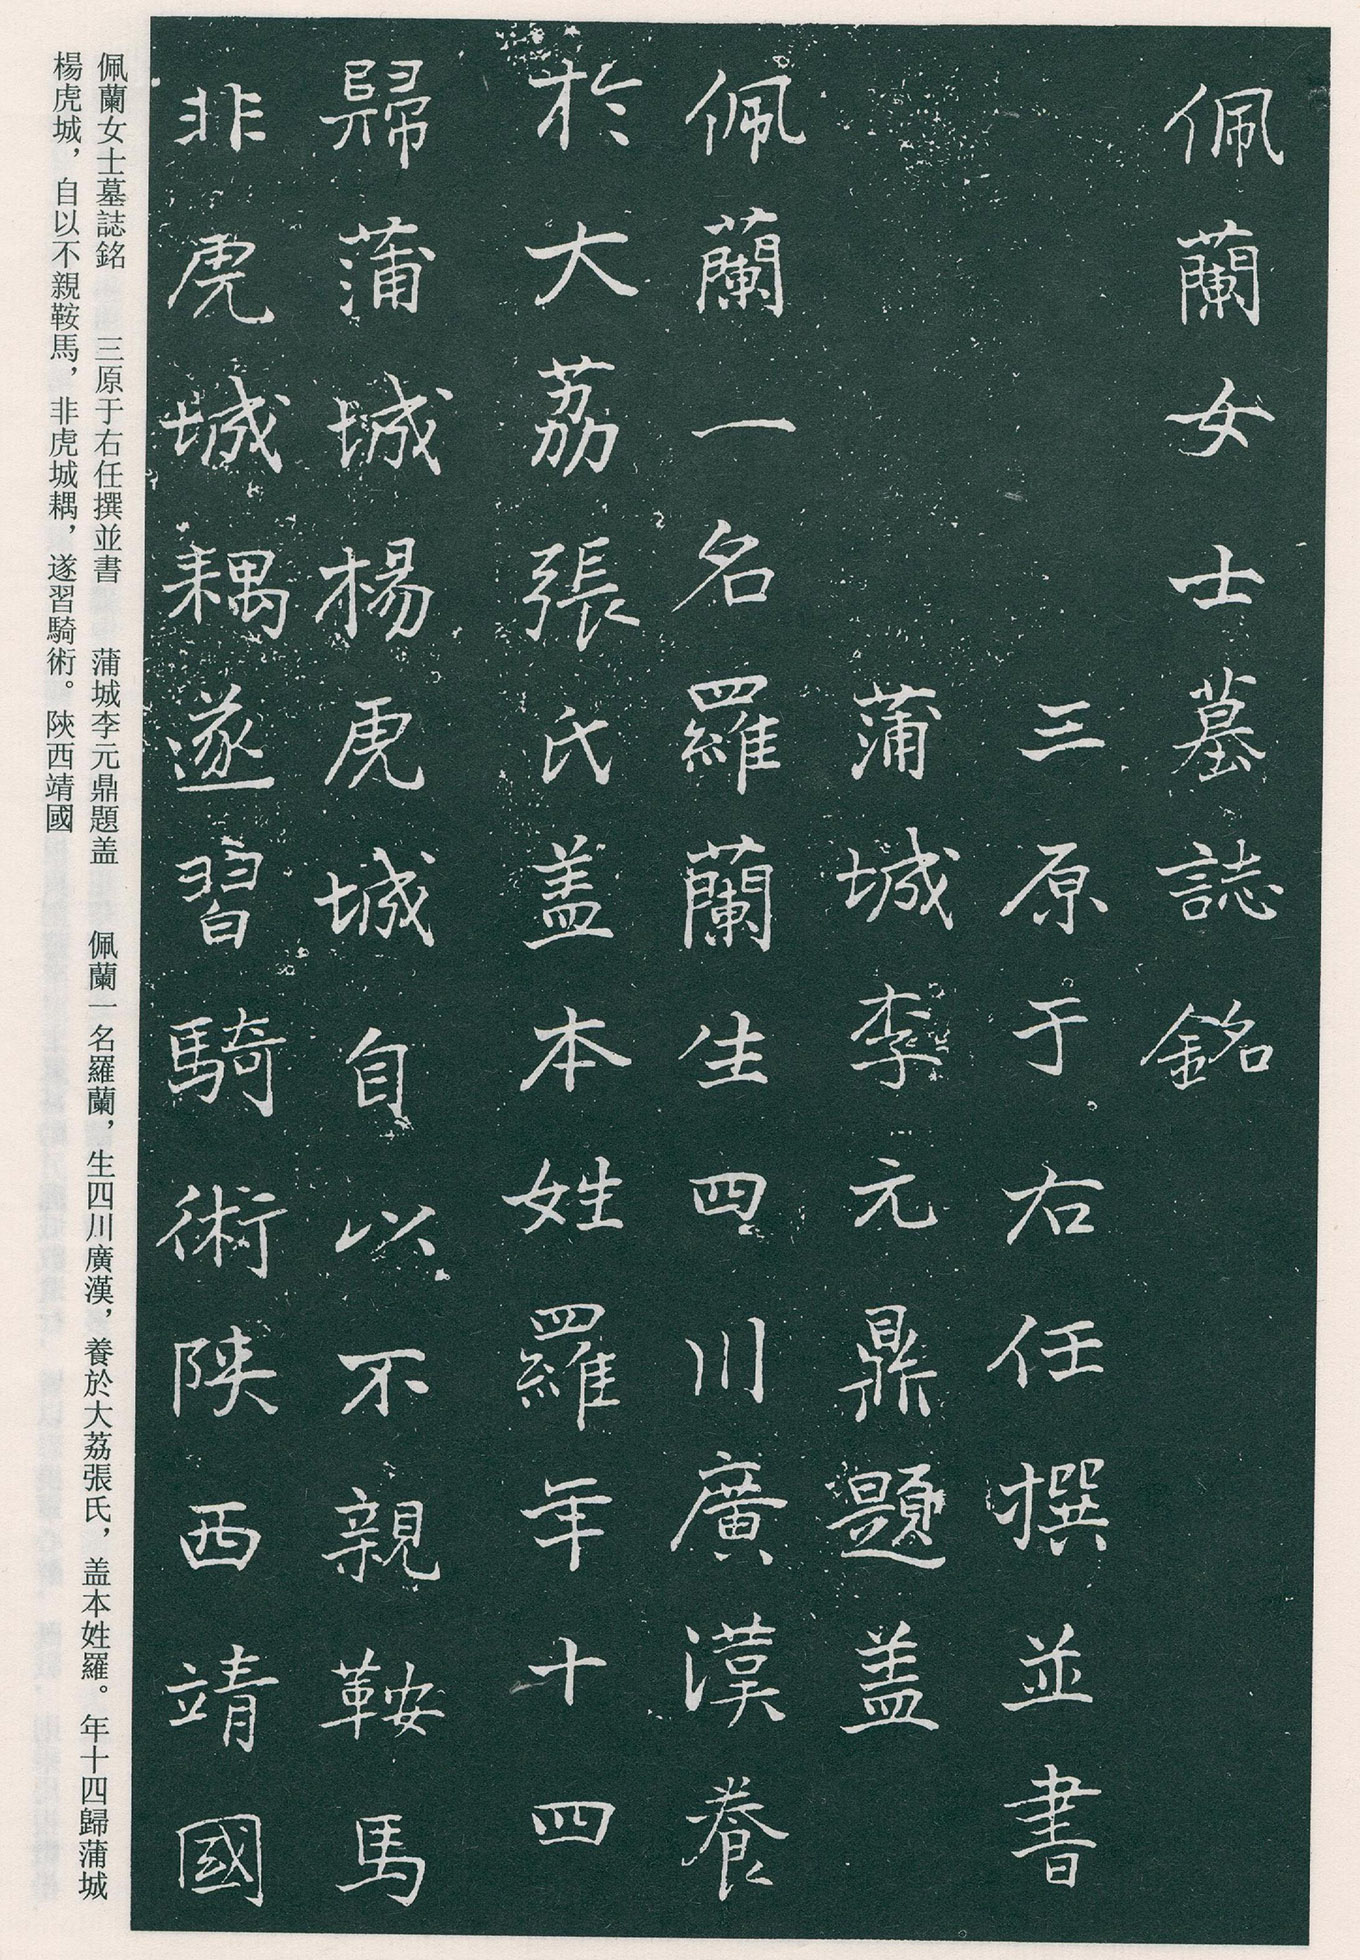 佩蘭女士墓誌銘
三原于右任撰並書
蒲城李元鼎題盖
佩蘭一名羅蘭生四川廣漢養
於大荔張氏盖本姓羅年十四
歸蒲城楊虎城自以不親鞍馬
非虎城耦遂習騎術陝西靖國
佩蘭女士墓誌銘　三原于右任撰並書　蒲城李元鼎題盖　佩蘭一名羅蘭，生四川廣漢，養於大荔張氏，盖本姓羅。年十四歸蒲城
楊虎城，自以不親鞍馬，非虎城耦，遂習騎術。陝西靖國